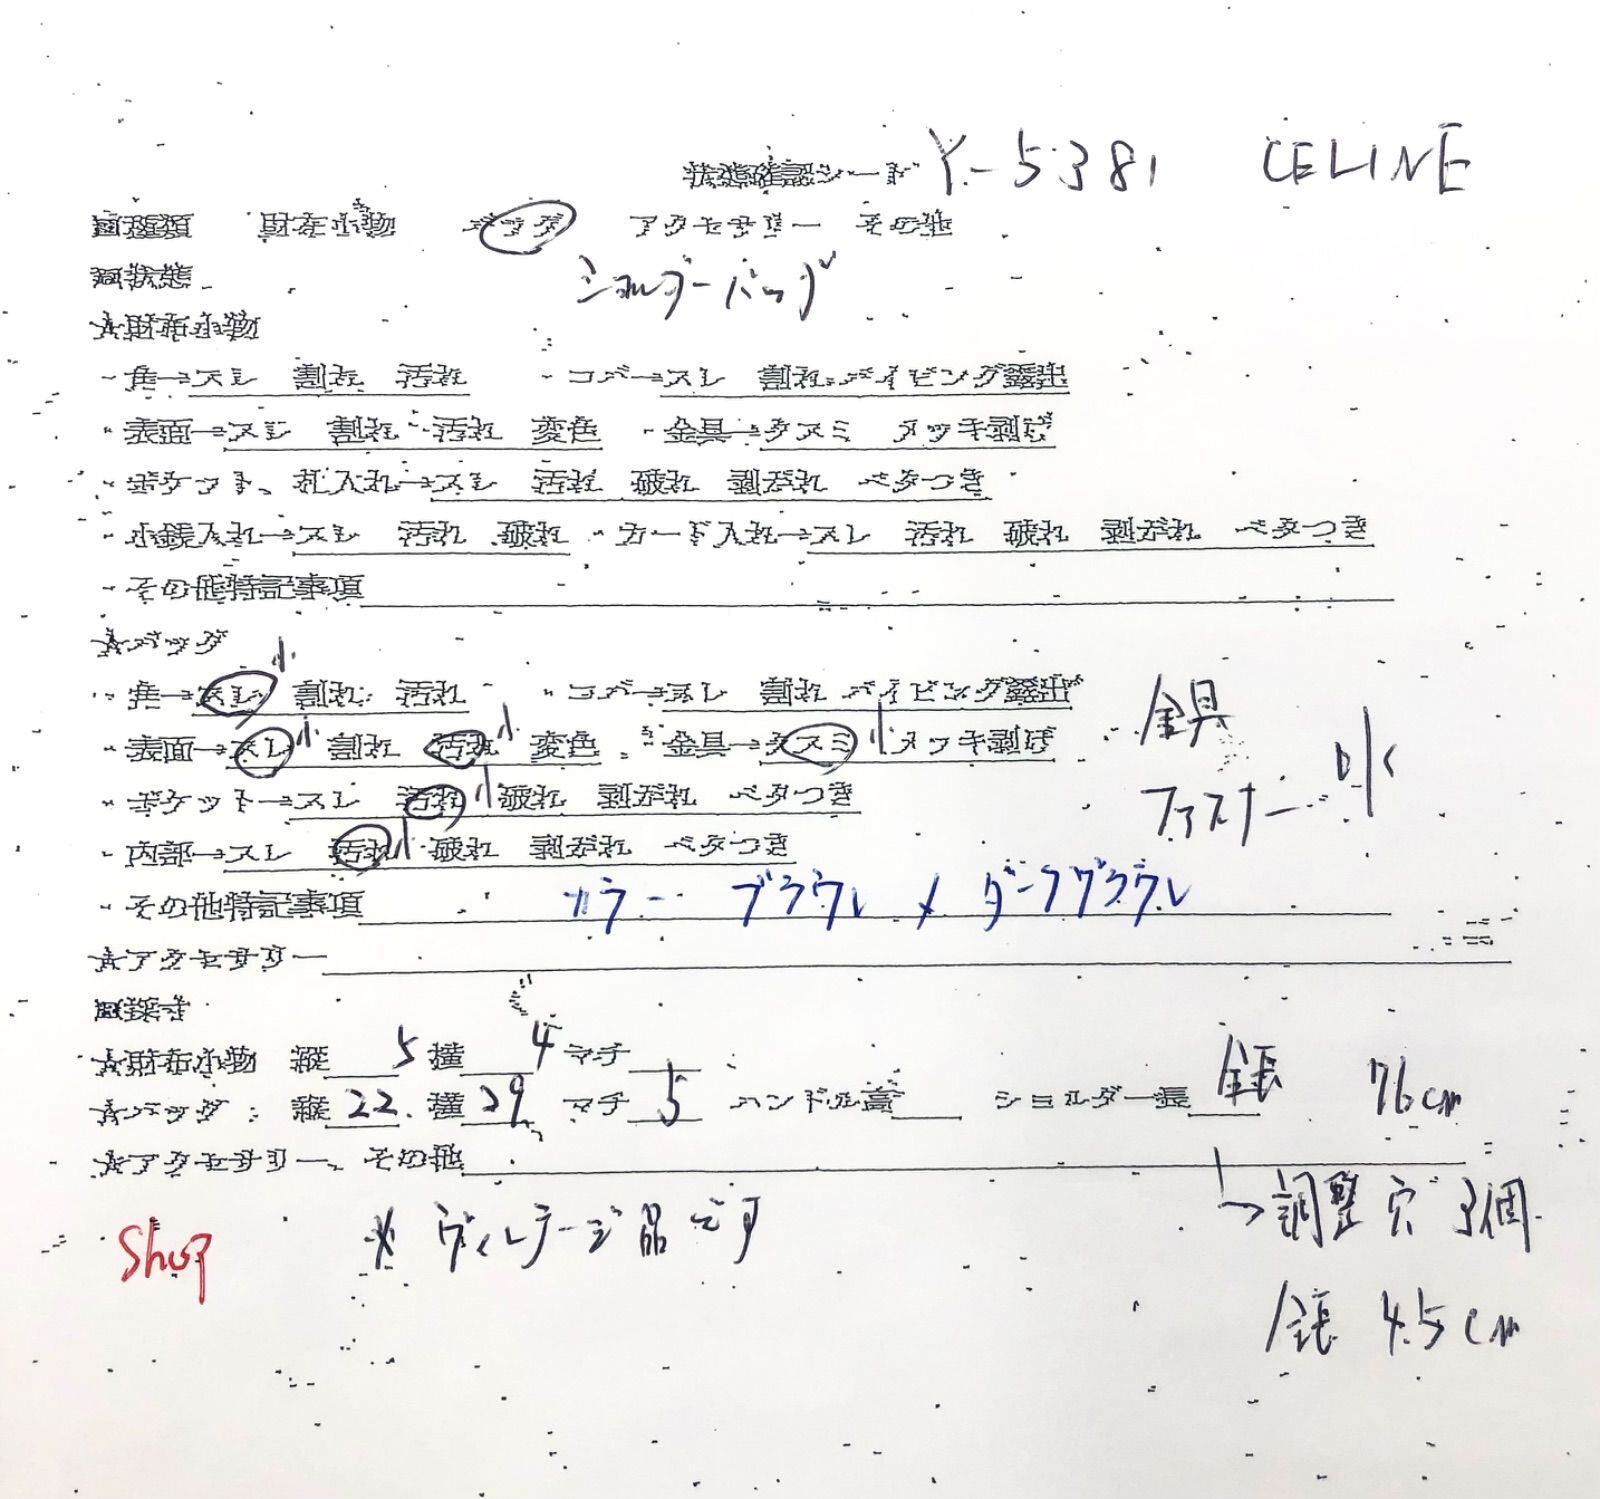 状態確認シード Y-5381 CELINE
■種類 財布小物 バッグ アクセサリー その他
ショルダーバッグ
■状態
★財布小物
・角→スレ 割れ 汚れ ・コバ→スレ 割れ パイピング露出
・表面→スレ 割れ 汚れ 変色 ・金具→クスミ メッキ剥げ
・ポケット、札入れ→スレ 汚れ 破れ 剥がれ ベタつき
・小銭入れ→スレ 汚れ 破れ ・カード入れ→スレ 汚れ 破れ 剥がれ ベタつき
・その他特記事項
★バッグ
・角→スレ小 割れ 汚れ ・コバ→スレ 割れ パイピング露出
・表面→スレ小 割れ 汚れ小 変色 ・金具→クスミ小 メッキ剥げ
金具
・ポケット→スレ 汚れ小 破れ 剥がれ ベタつき
ファスナー
・内部→スレ 汚れ小 破れ 剥がれ ベタつき
・その他特記事項 カラー ブラウン × ダークブラウン
★アクセサリー
■採寸
★財布小物 縦 5 横 4 マチ
★バッグ : 縦 22. 横 29 マチ 5 ハンドル高 ショルダー長 全長 76cm
★アクセサリー、その他
→調整穴 3個
Shop ※ ヴィンテージ品です
全長 45cm